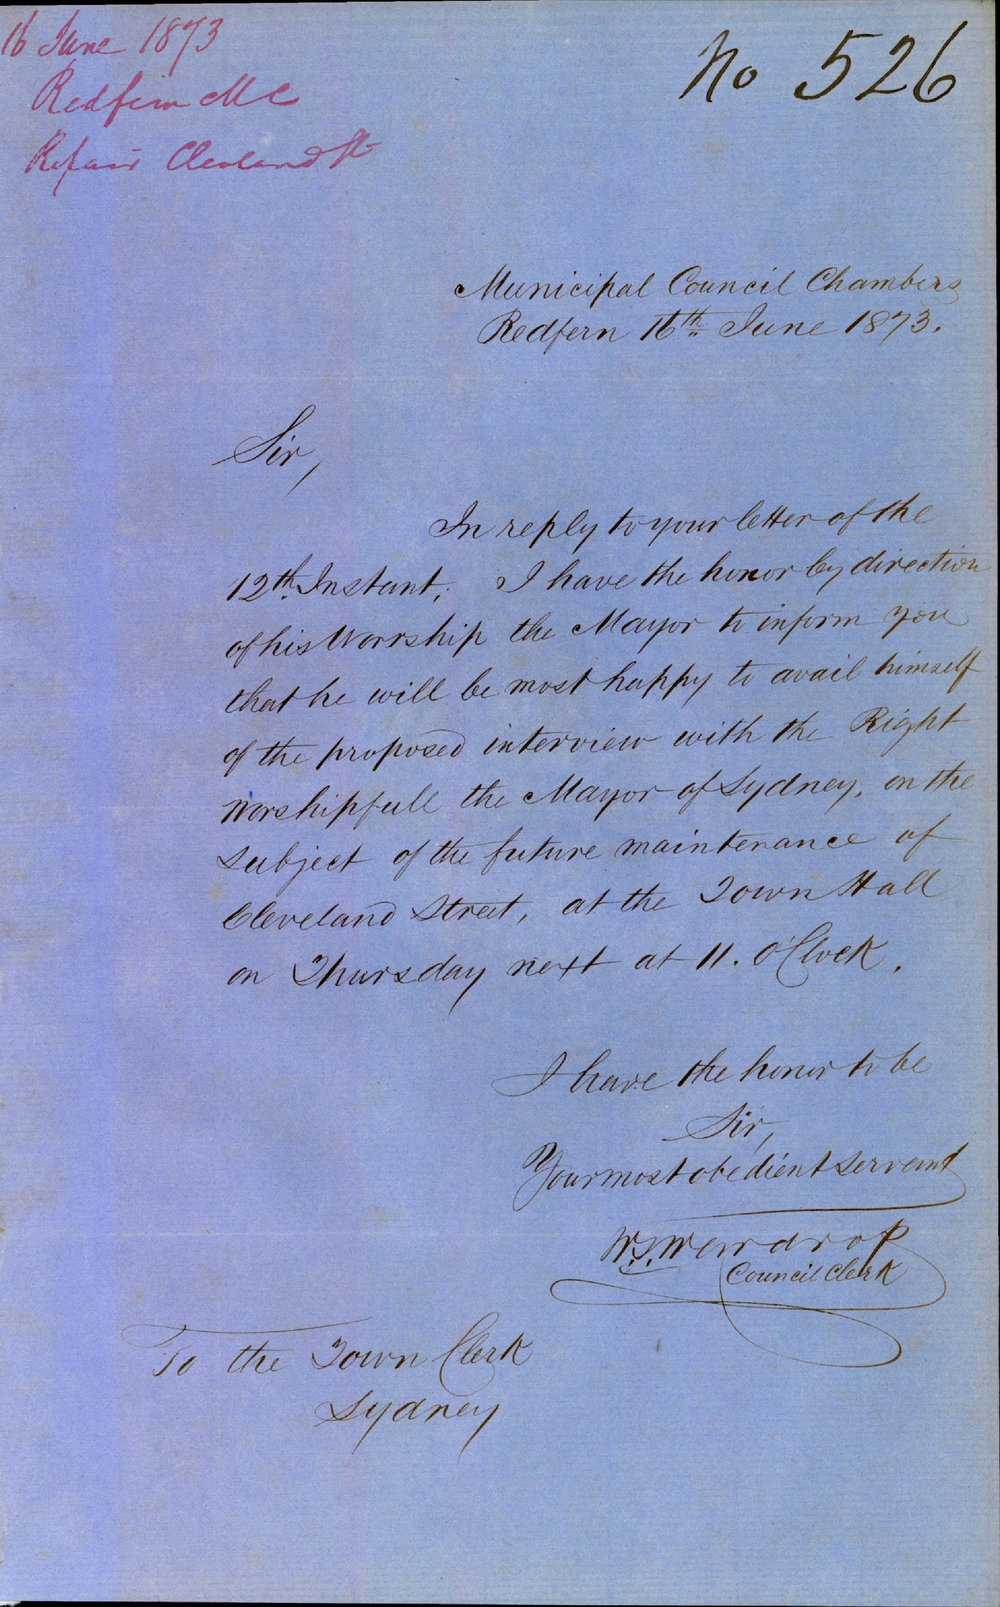 16 June 1873
Redfern M C
Repair Cleveland St
No 526
Municipal Council Chambers
Redfern 16th June 1873.
Sir,
In reply to your letter of the
12th Instant, I have the honor by direction
of his Worship the Mayor to inform you
that he will be most happy to avail himself
of the proposed interview with the Right
Worshipfull the Mayor of Sydney, on the
subject of the future maintenance of
Cleveland Street, at the Town Hall
on Thursday next at 11. O'Clock.
I have the honor to be
Sir,
Your most obedient servant
W.S. Wardrop
Council Clerk
To the Town Clerk
Sydney